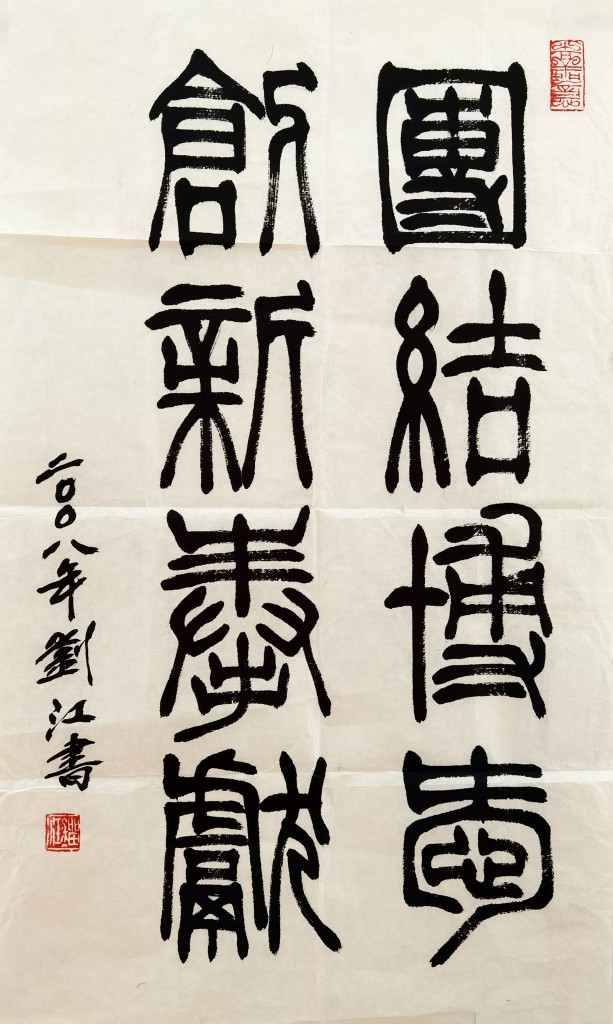 團結博愛
創新奉獻
二〇〇八年劉江書